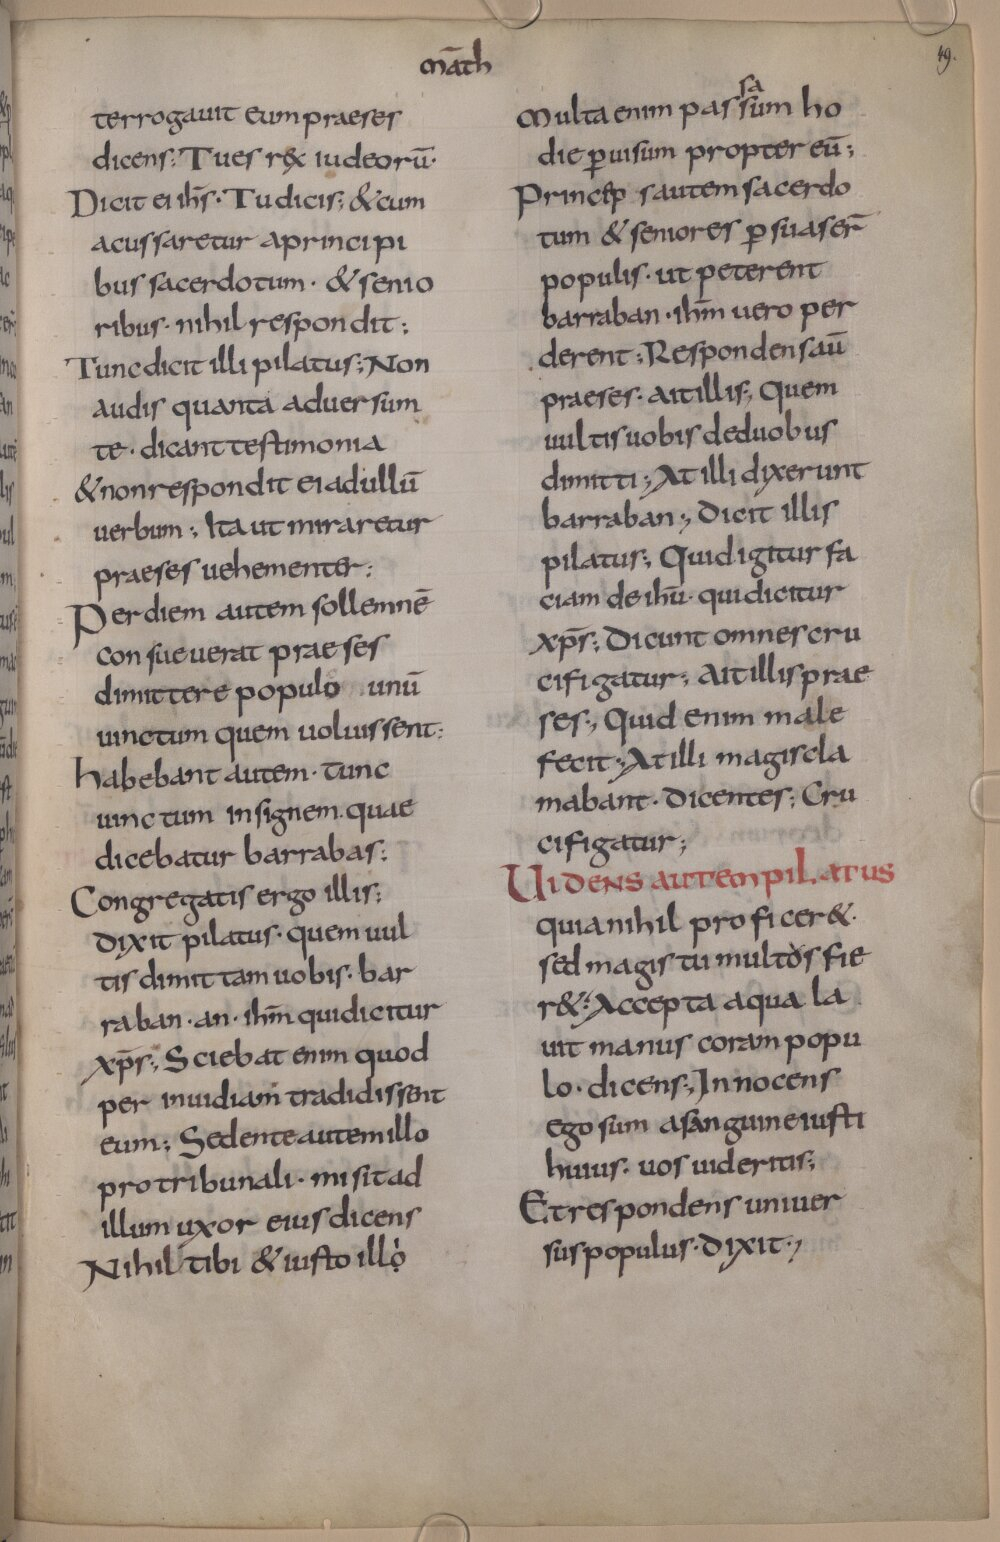 māth
49.
terrogauit eum praeses
dicens: Tu es rex iudeorū·
Dicit ei ih̄s· Tu dicis; & cum
acussaretur a principi
bus sacerdotum· & senio
ribus· nihil respondit;
Tunc dicit illi pilatus; Non
audis quanta aduersum
te· dicant testimonia
& non respondit ei ad ullū
uerbum; Ita ut miraretur
praeses uehementer:
Per diem autem sollemnē
consueuerat praeses
dimittere populo unū
uinctum quem uoluissent:
habebant autem· tunc
uinctum insignem· quae
dicebatur barrabas:
Congregatis ergo illis;
dixit pilatus· quem uul
tis dimittam uobis· bar
raban· an· ih̄m qui dicitur
xp̄s; Sciebat enim quod
per inuidiam tradidissent
eum; Sedente autem illo
pro tribunali· misit ad
illum uxor eius dicens
Nihil tibi & iusto illo
sa
Multa enim passum ho
die ꝑ uisum propter eū;
Princep̄s autem sacerdo
tum & seniores ꝑsuaser̄
populis· ut peterent
barraban· ih̄m uero per
derent; Respondens aū
praeses· ait illis; Quem
uultis uobis de duobus
dimitti; At illi dixerunt
barraban; Dicit illis
pilatus; Quid igitur fa
ciam de ih̄u· qui dicitur
xp̄s; Dicunt omnes cru
cifigatur; Ait illis prae
ses; Quid enim male
fecit; At illi magis cla
mabant· dicentes; Cru
cifigatur;
Uidens autem pilatus
quia nihil proficer&·
sed magis tumultos fie
r&; Accepta aqua la
uit manus coram popu
lo· dicens; Innocens
ego sum a sanguine iusti
huius· uos uideritis;
Et respondens uniuer
sus populus· dixit;